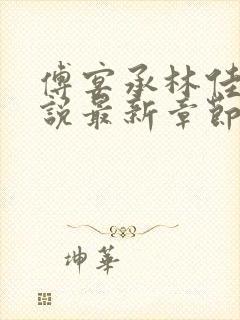 傅宴承林佳
說最新章節
坤華